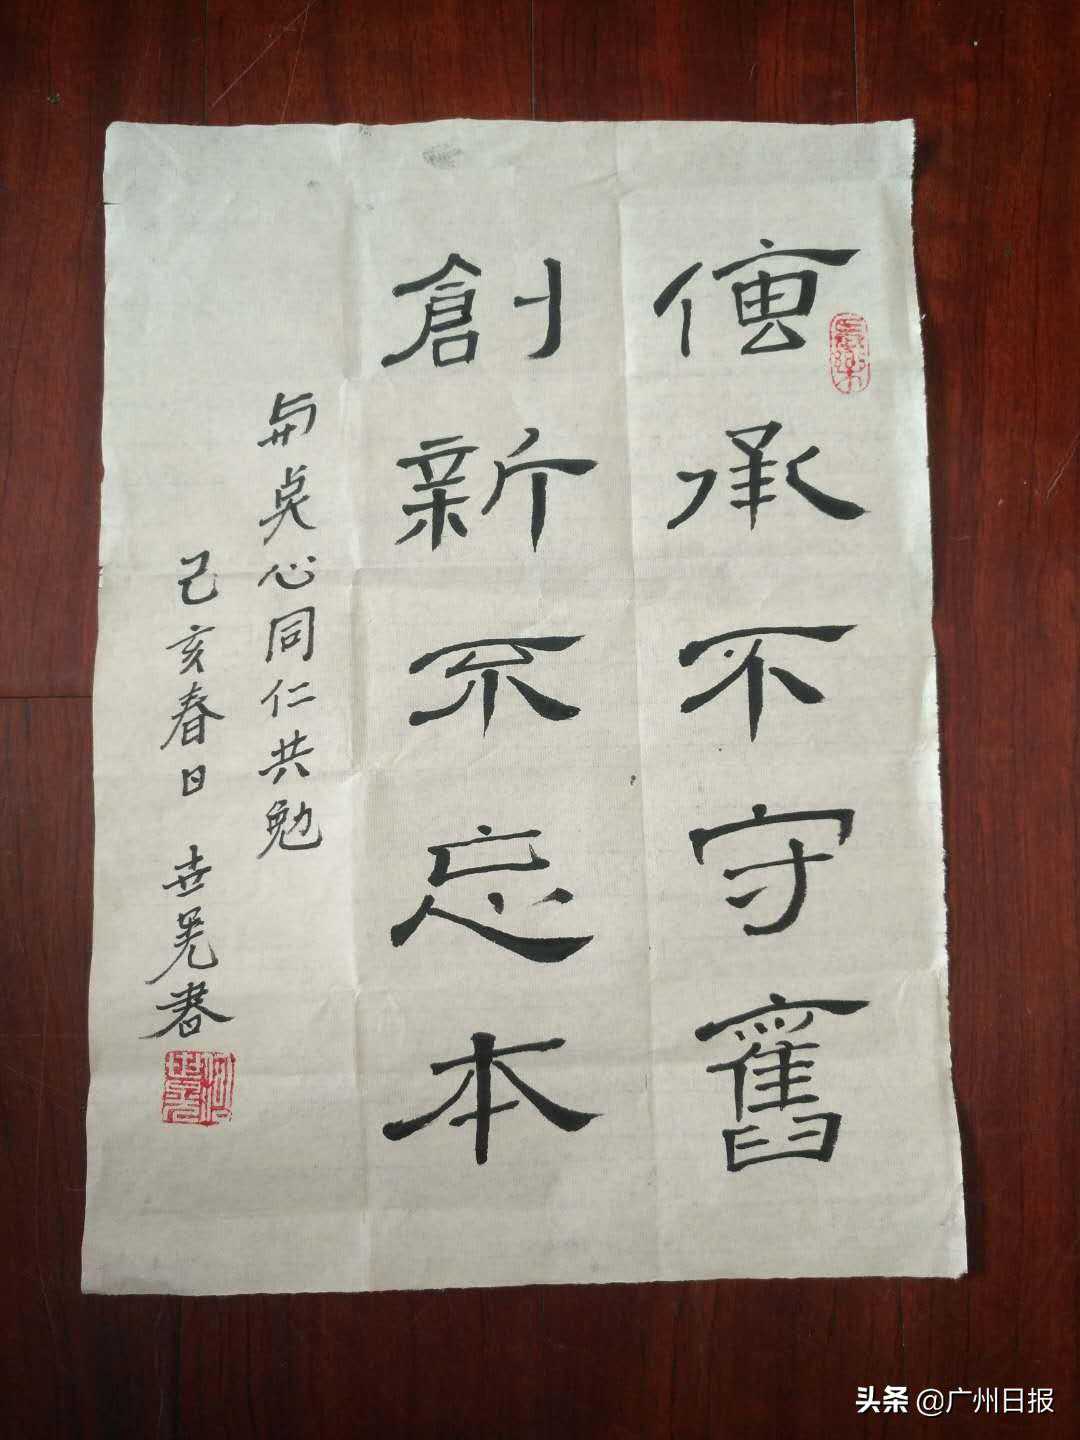 傳承不守舊
創新不忘本
与点心同仁共勉
己亥春日 世晃書
头条 @广州日报